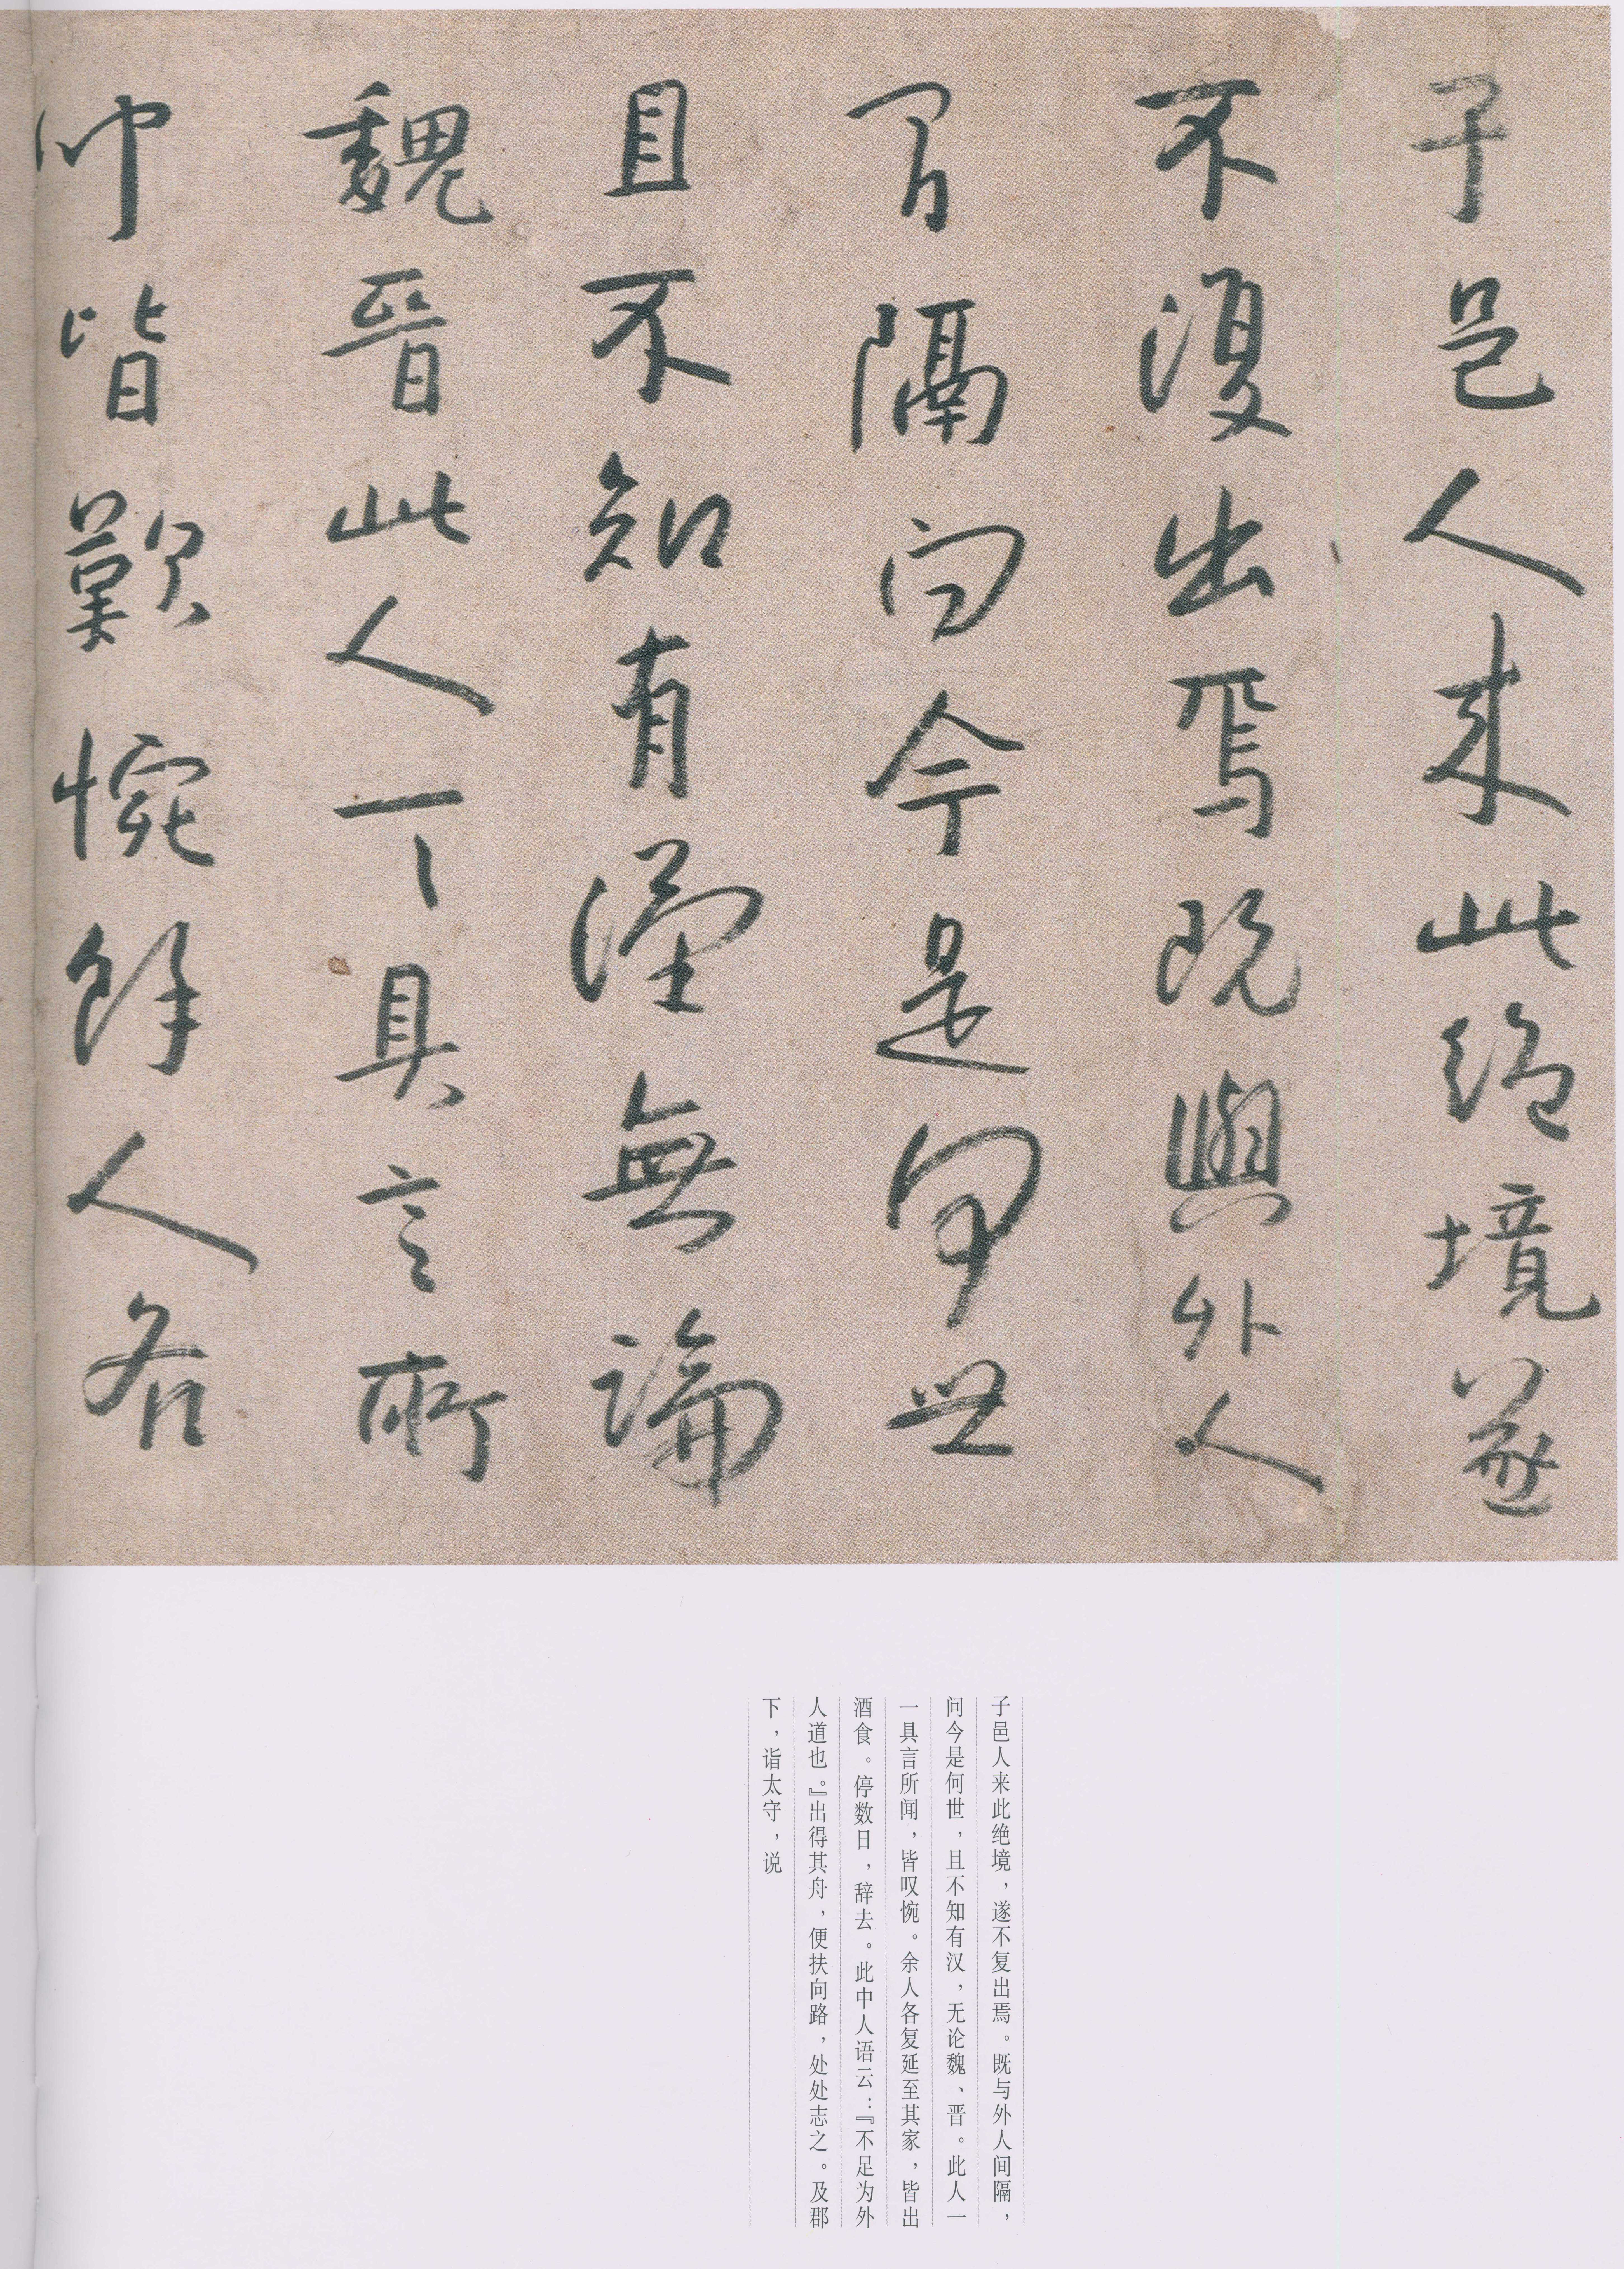 子邑人来此絶境遂
不復出焉既與外人
間隔問今是何世
且不知有漢無論
魏晉此人一一具言所
聞皆歎惋餘人各
子邑人来此绝境，遂不复出焉。既与外人间隔，
问今是何世，且不知有汉，无论魏、晋。此人一
一具言所闻，皆叹惋。余人各复延至其家，皆出
酒食。停数日，辞去。此中人语云：『不足为外
人道也。』出得其舟，便扶向路，处处志之。及郡
下，诣太守，说